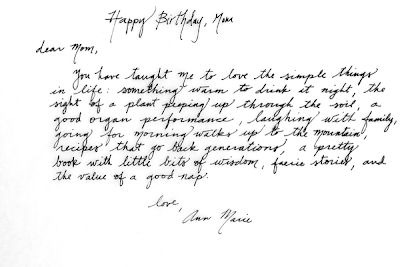 Happy Birthday, Mom
dear Mom,
You have taught me to love the simple things
in life: something warm to drink at night, the
sight of a plant peeping up through the soil, a
good organ performance, laughing with family,
going for morning walks up to the mountain,
recipes that go back generations, a pretty
book with little bits of wisdom, faerie stories, and
the value of a good nap.
love,
Ann Marie